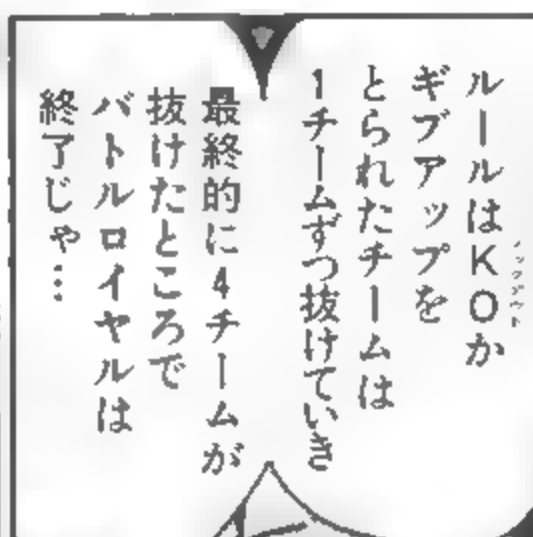 ルールはKOか
ノックアウト
ギブアップを
とられたチームは
1チームずつ抜けていき
最終的に4チームが
抜けたところで
バトルロイヤルは
終了じゃ…